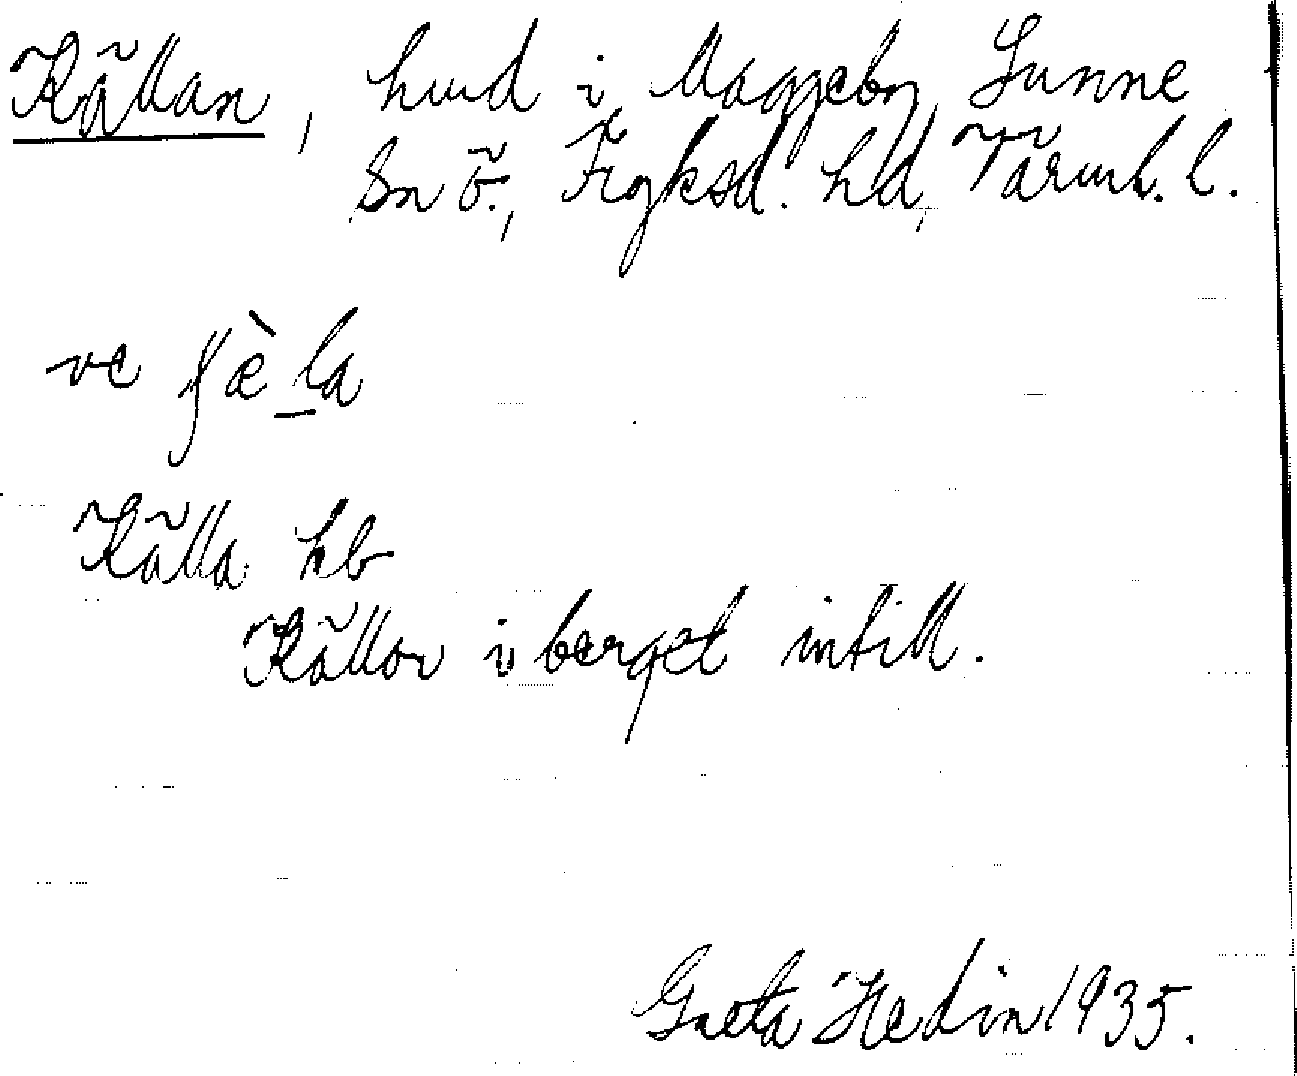 Källan, hmd i Maggeby, Sunne
sn ö., Fryksd. hd, Värml. l.
ve
Källa hb
Källor i berget intill.
Greta Hedin 1935.